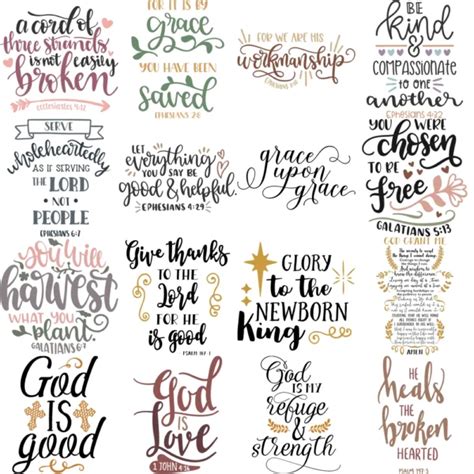 a cord of
three strands
is not easily
broken
Ecclesiastes 4:12
FOR IT IS BY
grace
YOU HAVE BEEN
saved
EPHESIANS 2:8
FOR WE ARE HIS
workmanship
EPHESIANS 2:10
BE
kind
&
COMPASSIONATE
to one
another
Ephesians 4:32
SERVE
wholeheartedly
AS IF SERVING
THE LORD
NOT
PEOPLE
EPHESIANS 6:7
LET
everything
YOU SAY BE
good & helpful.
EPHESIANS 4:29
grace
upon
grace
YOU WERE
chosen
TO BE
free
GALATIANS 5:13
you will
harvest
WHAT YOU
plant.
GALATIANS 6:7
Give thanks
TO THE
Lord
FOR HE
is good
PSALM 107:1
GLORY
to the
NEWBORN
King
GOD GRANT ME
AMEN
God
IS
good
GOD
IS
Love
1 JOHN 4:16
God
IS MY
refuge
&
strength
HE
heals
THE
broken
HEARTED
PSALM 147:3